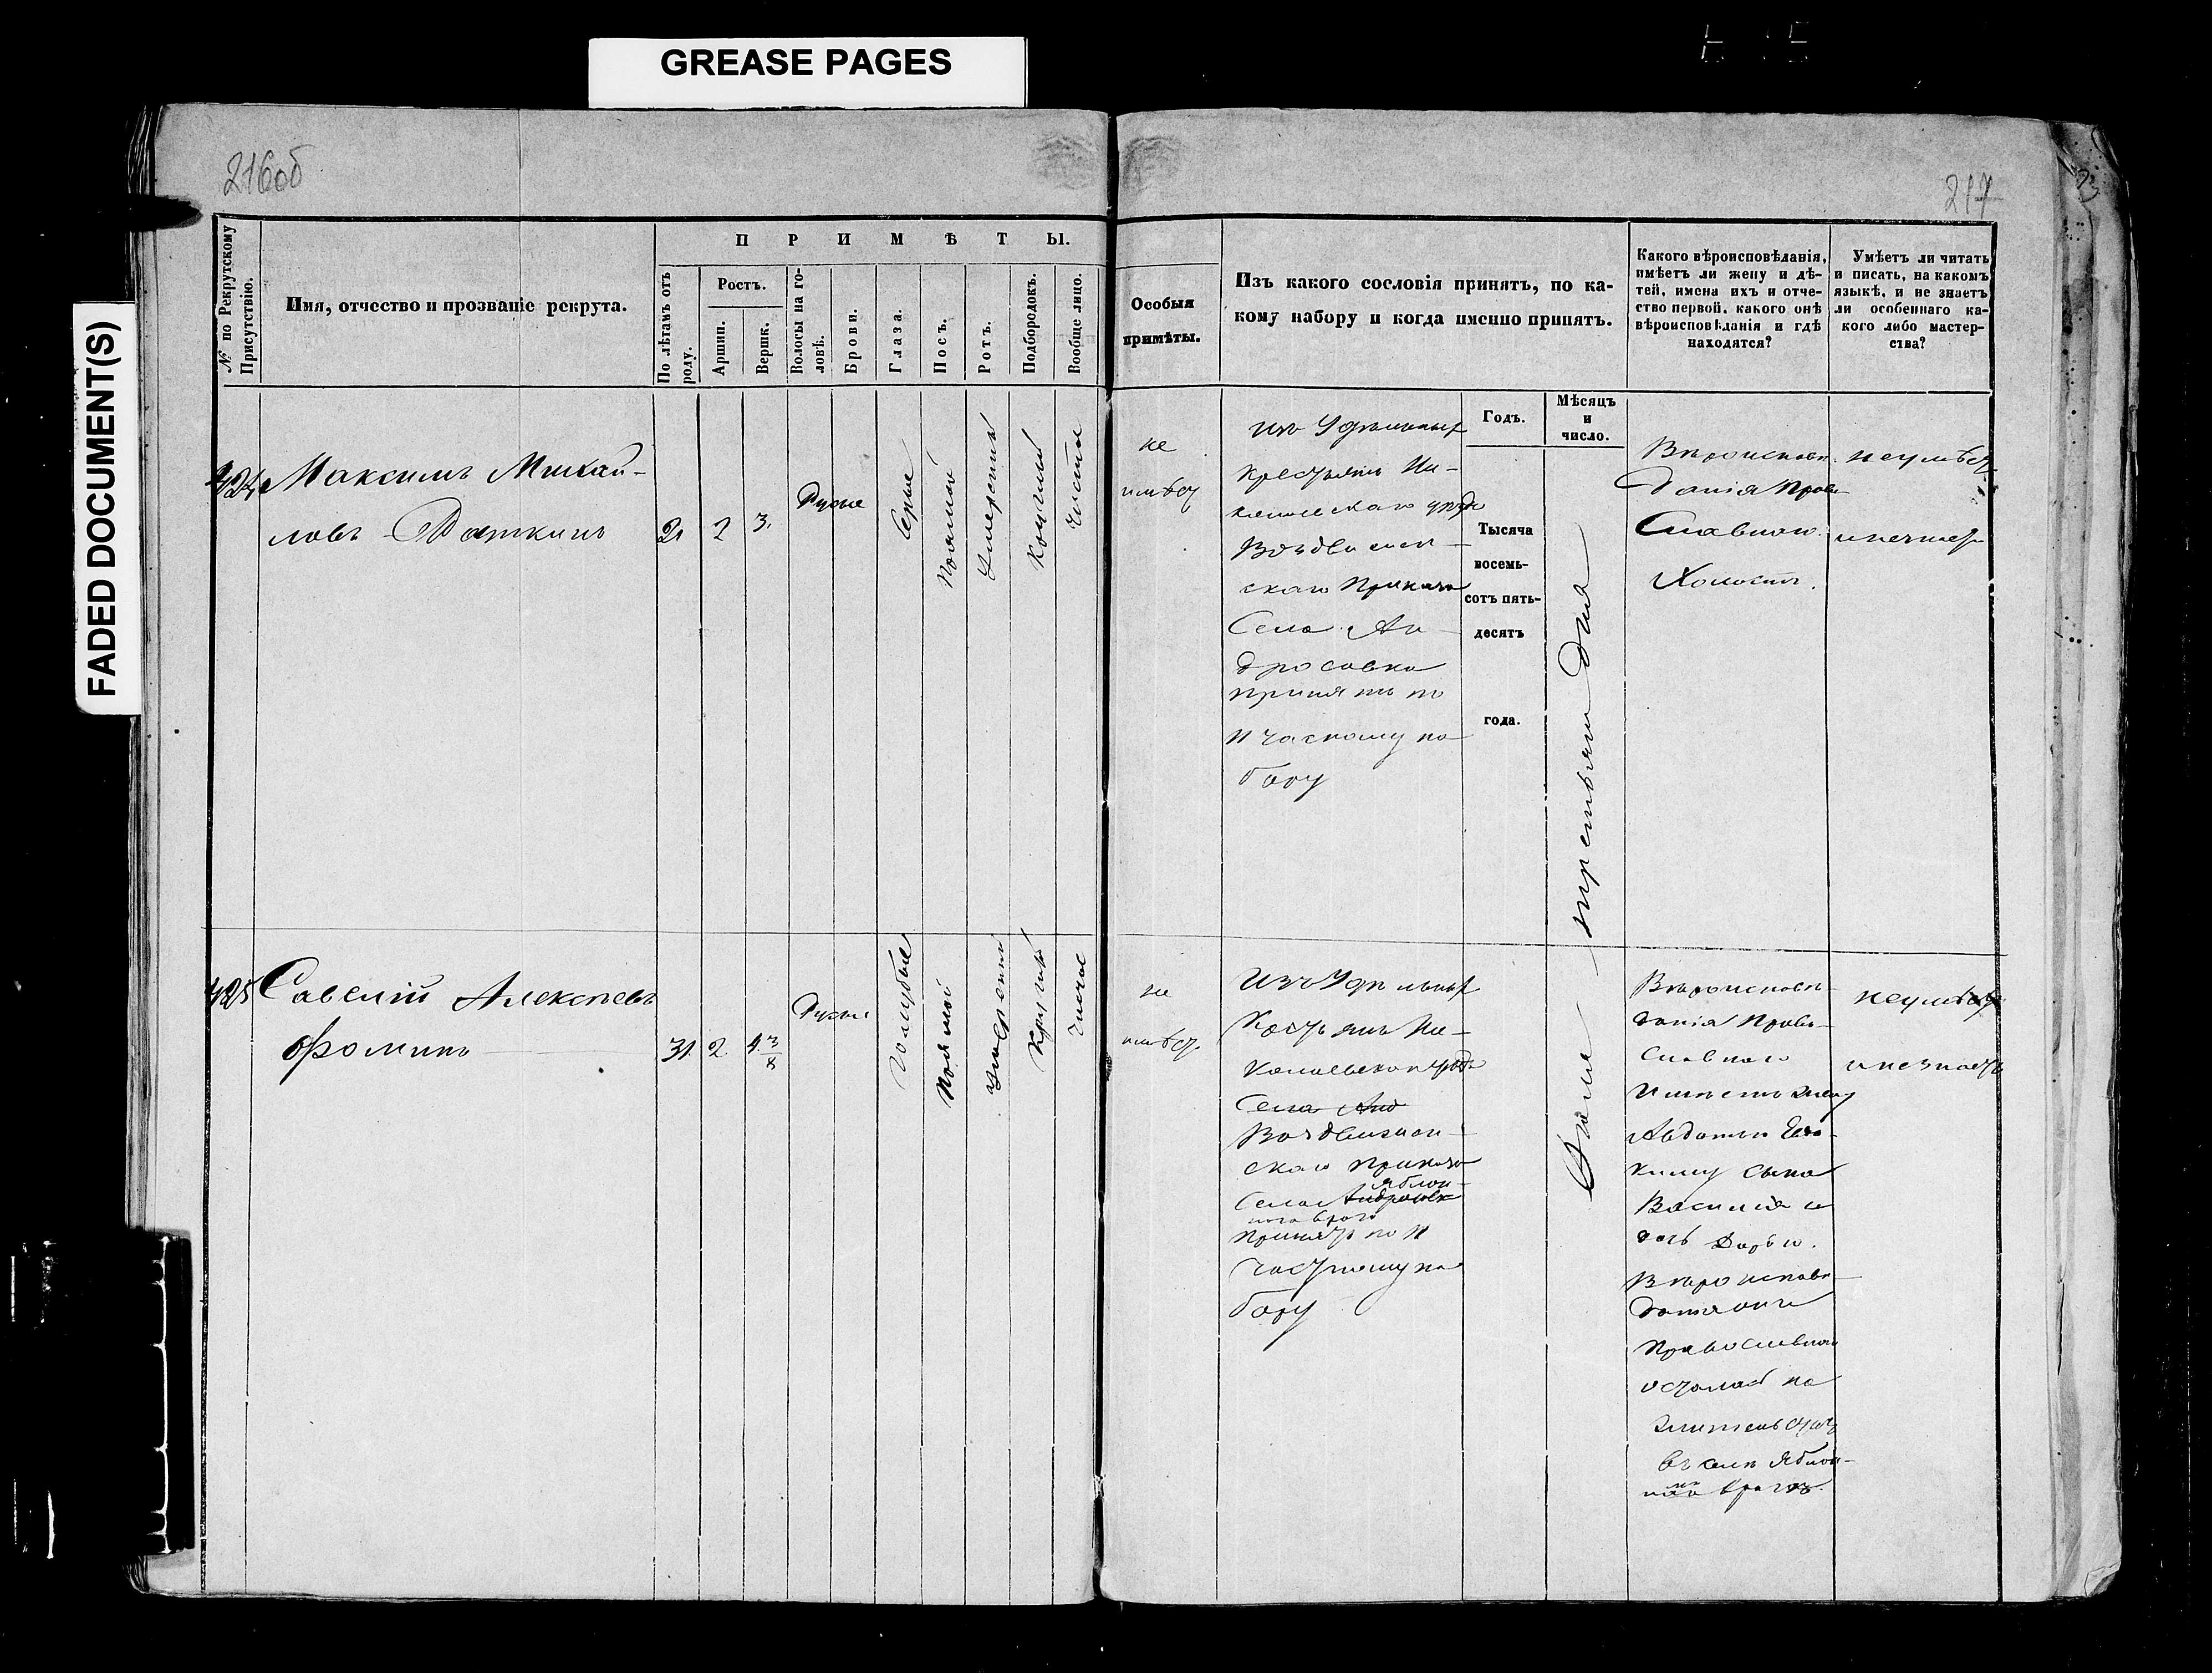 GREASE PAGES
FADED DOCUMENT(S)
216об
217
№ по Рекрутскому Присутствію.
Имя, отчество и прозваніе рекрута.
ПРИМѢТЫ.
По лѣтамъ отъ роду.
Ростъ.
Аршин.
Вершк.
Волосы на головѣ.
Брови.
Глаза.
Носъ.
Ротъ.
Подбородокъ.
Вообще лицо.
Особыя
примѣты.
Изъ какого сословія принятъ, по ка-
кому набору и когда именно принятъ.
Годъ.
Мѣсяцъ
и
число.
Какого вѣроисповѣданія,
имѣетъ ли жену и дѣ-
тей, имена ихъ и отче-
ство первой, какого онѣ
вѣроисповѣданія и гдѣ
находятся?
Умѣетъ ли читать
и писать, на какомъ
языкѣ, и не знаетъ
ли особеннаго ка-
кого либо мастер-
ства?
424
Максимъ Михай-
ловъ
21
2
3.
Русые
Серые
Прямой
Умеренный
Чистое
не
имѣетъ
изъ Удѣльныхъ
крестьянъ Ни-
колаевскаго уѣзда
Воздвижен-
скаго Приказа
Села Ан-
дросовки
принятъ по
набору
Тысяча
восемь-
сотъ пять-
десятъ
года.
Третьяго дня
Вѣроисповѣ-
данія Право-
Славнаго
Холостъ.
неумѣетъ
и незнаетъ
425
Савелій Алексѣевъ
Фоминъ
31.
2.
4 3/8
Русые
Голубые
Прямой
Умеренный
Круглый
Чистое
не
имѣетъ.
Изъ Удѣльныхъ
Крестьянъ Ни-
колаевскаго уѣзда
Села Анд
Воздвижен-
скаго Приказа
Яблон-
Села Андросовк
наго врага
Принятъ по II
частному на-
бору
Іюля
Вѣроисповѣ-
данія Право-
славнаго
Имѣетъ жену
Авдотью Евдо-
кимову сына
Василія и
дочь Дарью.
Вѣроисповѣ-
данія они
Православнаго
остались на
жительствѣ
въ селѣ Яблон-
врагѣ.
неумѣетъ
и незнаетъ